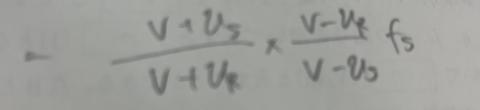 - \frac{V + V_S}{V + V_R} \times \frac{V - V_R}{V - V_S} f_S